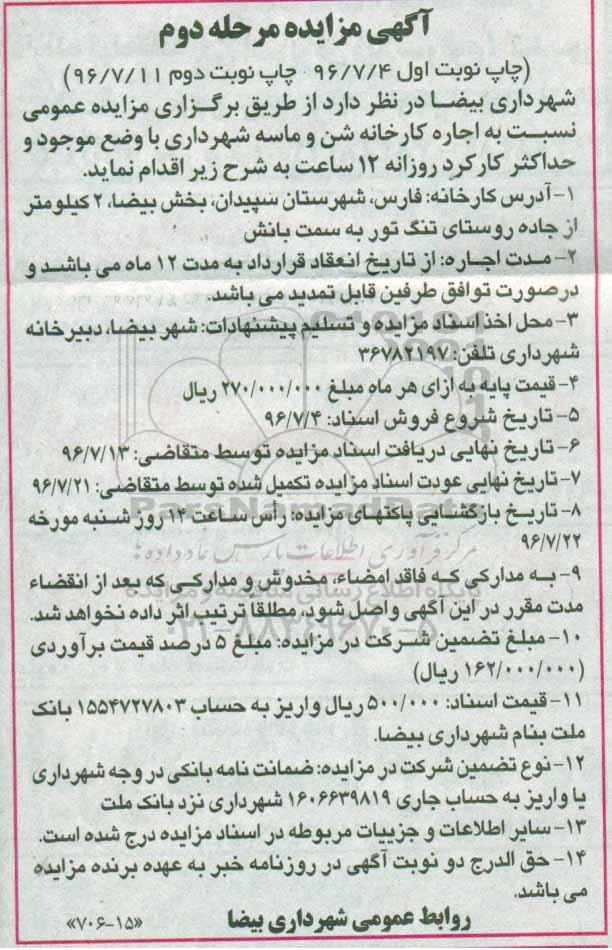 آگهی مزایده مرحله دوم
(چاپ نوبت اول ۹۶/۷/۴ چاپ نوبت دوم ۹۶/۷/۱۱)
شهرداری بیضا در نظر دارد از طریق برگزاری مزایده عمومی
نسبت به اجاره کارخانه شن و ماسه شهرداری با وضع موجود و
حداکثر کارکرد روزانه ۱۲ ساعت به شرح زیر اقدام نماید.
۱- آدرس کارخانه: فارس، شهرستان سپیدان، بخش بیضا، ۲ کیلومتر
از جاده روستای تنگ تور به سمت بانش
۲- مدت اجاره: از تاریخ انعقاد قرارداد به مدت ۱۲ ماه می باشد و
درصورت توافق طرفین قابل تمدید می باشد.
۳- محل اخذ اسناد مزایده و تسلیم پیشنهادات: شهر بیضا، دبیرخانه
شهرداری تلفن: ۳۶۷۸۲۱۹۷
۴- قیمت پایه به ازای هر ماه مبلغ ۲۷۰/۰۰۰/۰۰۰ ریال
۵- تاریخ شروع فروش اسناد: ۹۶/۷/۴
۶- تاریخ نهایی دریافت اسناد مزایده توسط متقاضی: ۹۶/۷/۱۳
۷- تاریخ نهایی عودت اسناد مزایده تکمیل شده توسط متقاضی: ۹۶/۷/۲۱
۸- تاریخ بازگشایی پاکتهای مزایده: رأس ساعت ۱۲ روز شنبه مورخه
۹۶/۷/۲۲
ParsNamadData
مرکز فرآوری اطلاعات پارس نماد داده ها
۹- به مدارکی که فاقد امضاء، مخدوش و مدارکی که بعد از انقضاء
پایگاه اطلاع رسانی مناقصه و مزایده
مدت مقرر در این آگهی واصل شود، مطلقا ترتیب اثر داده نخواهد شد.
۰۲۱-۸۸۳۴۹۶۷۰-۵
۱۰- مبلغ تضمین شرکت در مزایده: مبلغ ۵ درصد قیمت برآوردی
(۱۶۲/۰۰۰/۰۰۰ ریال)
۱۱- قیمت اسناد: ۵۰۰/۰۰۰ ریال واریز به حساب ۱۵۵۴۷۲۷۸۰۳ بانک
ملت بنام شهرداری بیضا.
۱۲- نوع تضمین شرکت در مزایده: ضمانت نامه بانکی در وجه شهرداری
یا واریز به حساب جاری ۱۶۰۶۶۳۹۸۱۹ شهرداری نزد بانک ملت
۱۳- سایر اطلاعات و جزییات مربوطه در اسناد مزایده درج شده است.
۱۴- حق الدرج دو نوبت آگهی در روزنامه خبر به عهده برنده مزایده
می باشد.
روابط عمومی شهرداری بیضا
«۷۰۶-۱۵»